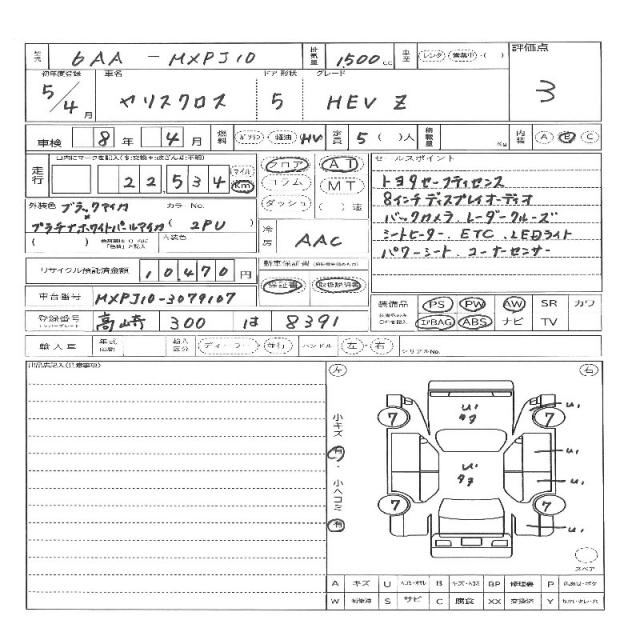 型式 6AA - MXPJ10 排気量 1500 cc 車歴 (レンタ) (営業中)・( ) 評価点
初年度登録 車名 ドア 形状 グレード
5/4月 ヤリスクロス 5 HEV Z 3
車検 8 年 4 月 燃料 ガソリン 軽油 HV 定員 5 ( )人 積載量 Kg 内装 A B C
走行 22,534 マイル Km フロア コラム ダッシュ AT MT ( )速
セールスポイント
トヨタセーフティセンス
8インチディスプレイオーディオ
バックカメラ、レーダークルーズ
シートヒーター、ETC、LEDライト
パワーシート、コーナーセンサー
外装色 ブラックマイカ カラーNo.
プラチナホワイトパールマイカ ( 2PU )
( ) 内装色 冷房 AAC
リサイクル預託済金額 10,470 円 新車保証書 保証書 取扱説明書
車台番号 MXPJ10-3079107
装備品 PS PW AW SR カワ
AIRBAG ABS ナビ TV
登録番号 高崎 300 は 8391
輸入車 年式 輸入区分 ディーラー・並行 ハンドル 左・右 シリアルNo.
左 右
小キズ 有・小ヘコミ 有
U1
7 7
U1
U1
U1
7 7
U1
スペア
A キズ U B BP 修理跡 P
W S サビ C 腐食 XX 交換済 Y